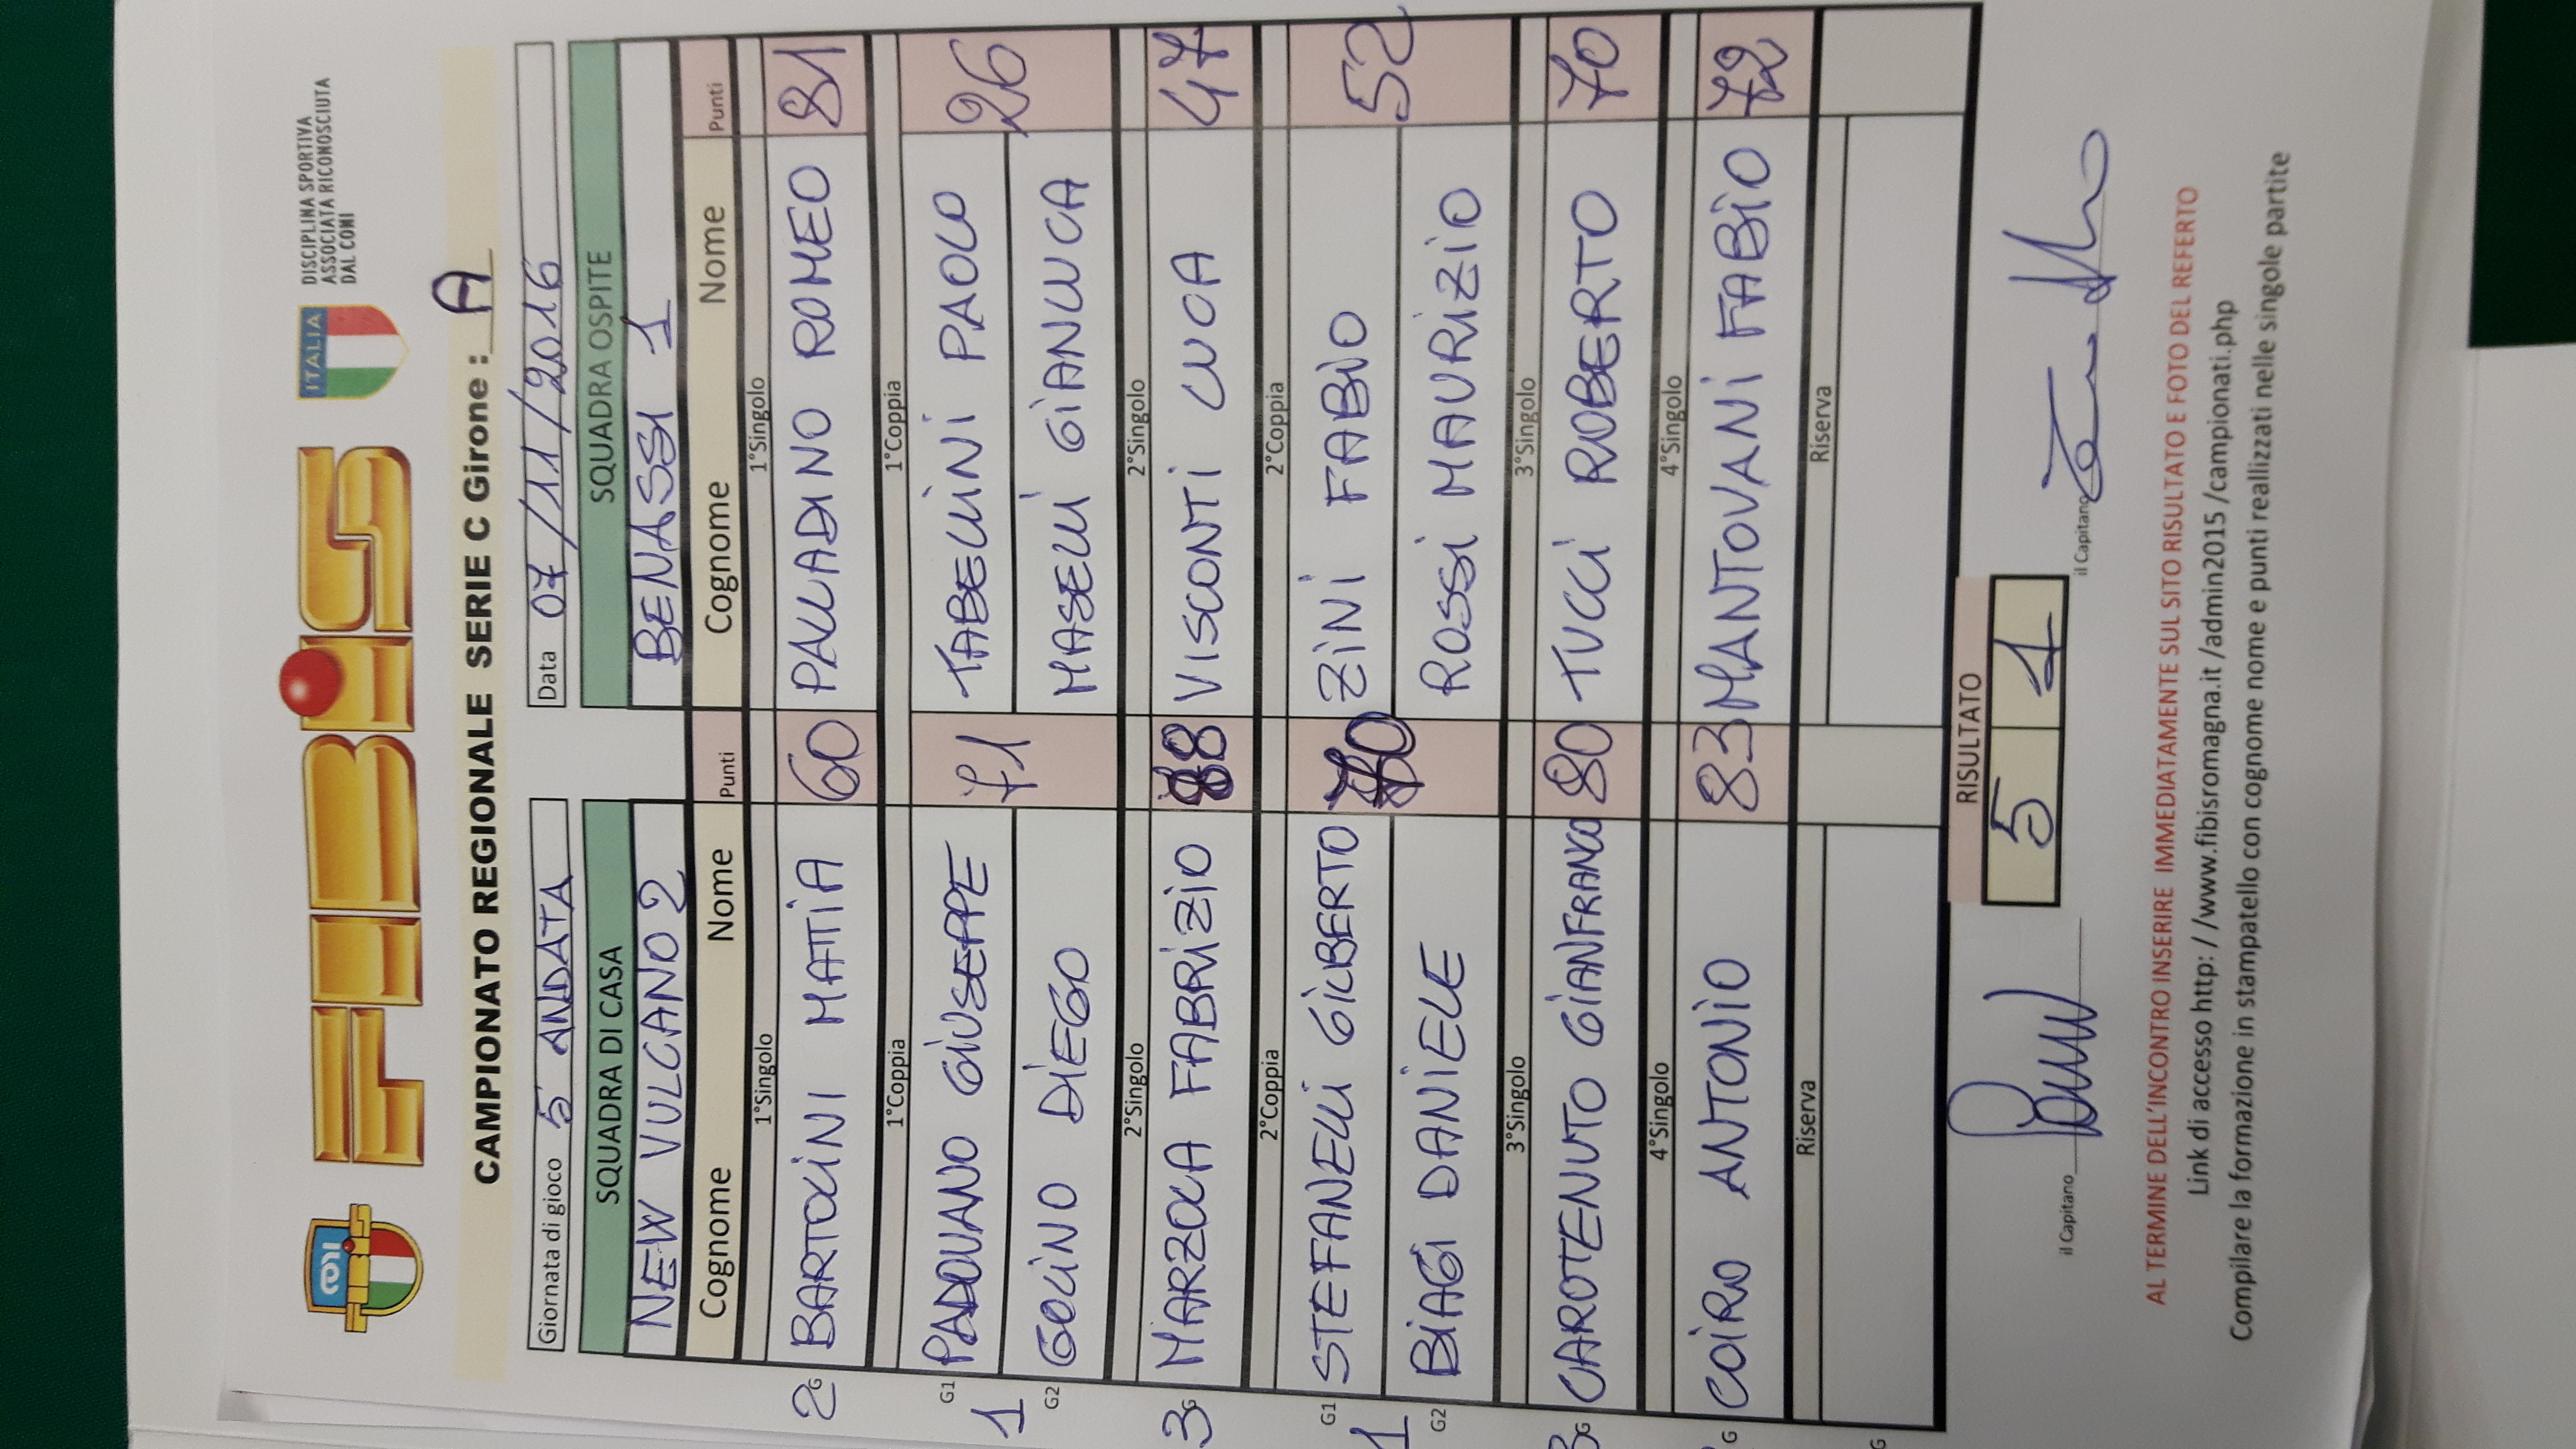 FIBIS
ITALIA
DISCIPLINA SPORTIVA
ASSOCIATA RICONOSCIUTA
DAL CONI
CAMPIONATO REGIONALE SERIE C Girone : A
Giornata di gioco 5 ANDATA
Data 07/11/2016
SQUADRA DI CASA
SQUADRA OSPITE
NEW VULCANO 2
BENASSI 1
Cognome Nome Punti Cognome Nome Punti
1°Singolo 1°Singolo
2 G BARTOLINI MATTIA 60 PALLADINO ROMEO 81
1°Coppia 1°Coppia
G1 PADOVANO GIUSEPPE 71 TABELLINI PAOLO 26
1
G2 GOLINO DIEGO MASELLI GIANLUCA
2°Singolo 2°Singolo
3 G MARZOLA FABRIZIO 88 VISCONTI LUCA 47
2°Coppia 2°Coppia
G1 STEFANELLI GILBERTO 70 ZINI FABIO 52
1
G2 BIAGI DANIELE ROSSI MAURIZIO
3°Singolo 3°Singolo
3 G CAROTENUTO GIANFRANCO 80 TUCCI ROBERTO 70
4°Singolo 4°Singolo
G COIRO ANTONIO 83 MANTOVANI FABIO 72
Riserva Riserva
G
RISULTATO
5 1
il Capitano il Capitano
AL TERMINE DELL'INCONTRO INSERIRE IMMEDIATAMENTE SUL SITO RISULTATO E FOTO DEL REFERTO
Link di accesso http: / /www.fibisromagna.it /admin2015 /campionati.php
Compilare la formazione in stampatello con cognome nome e punti realizzati nelle singole partite